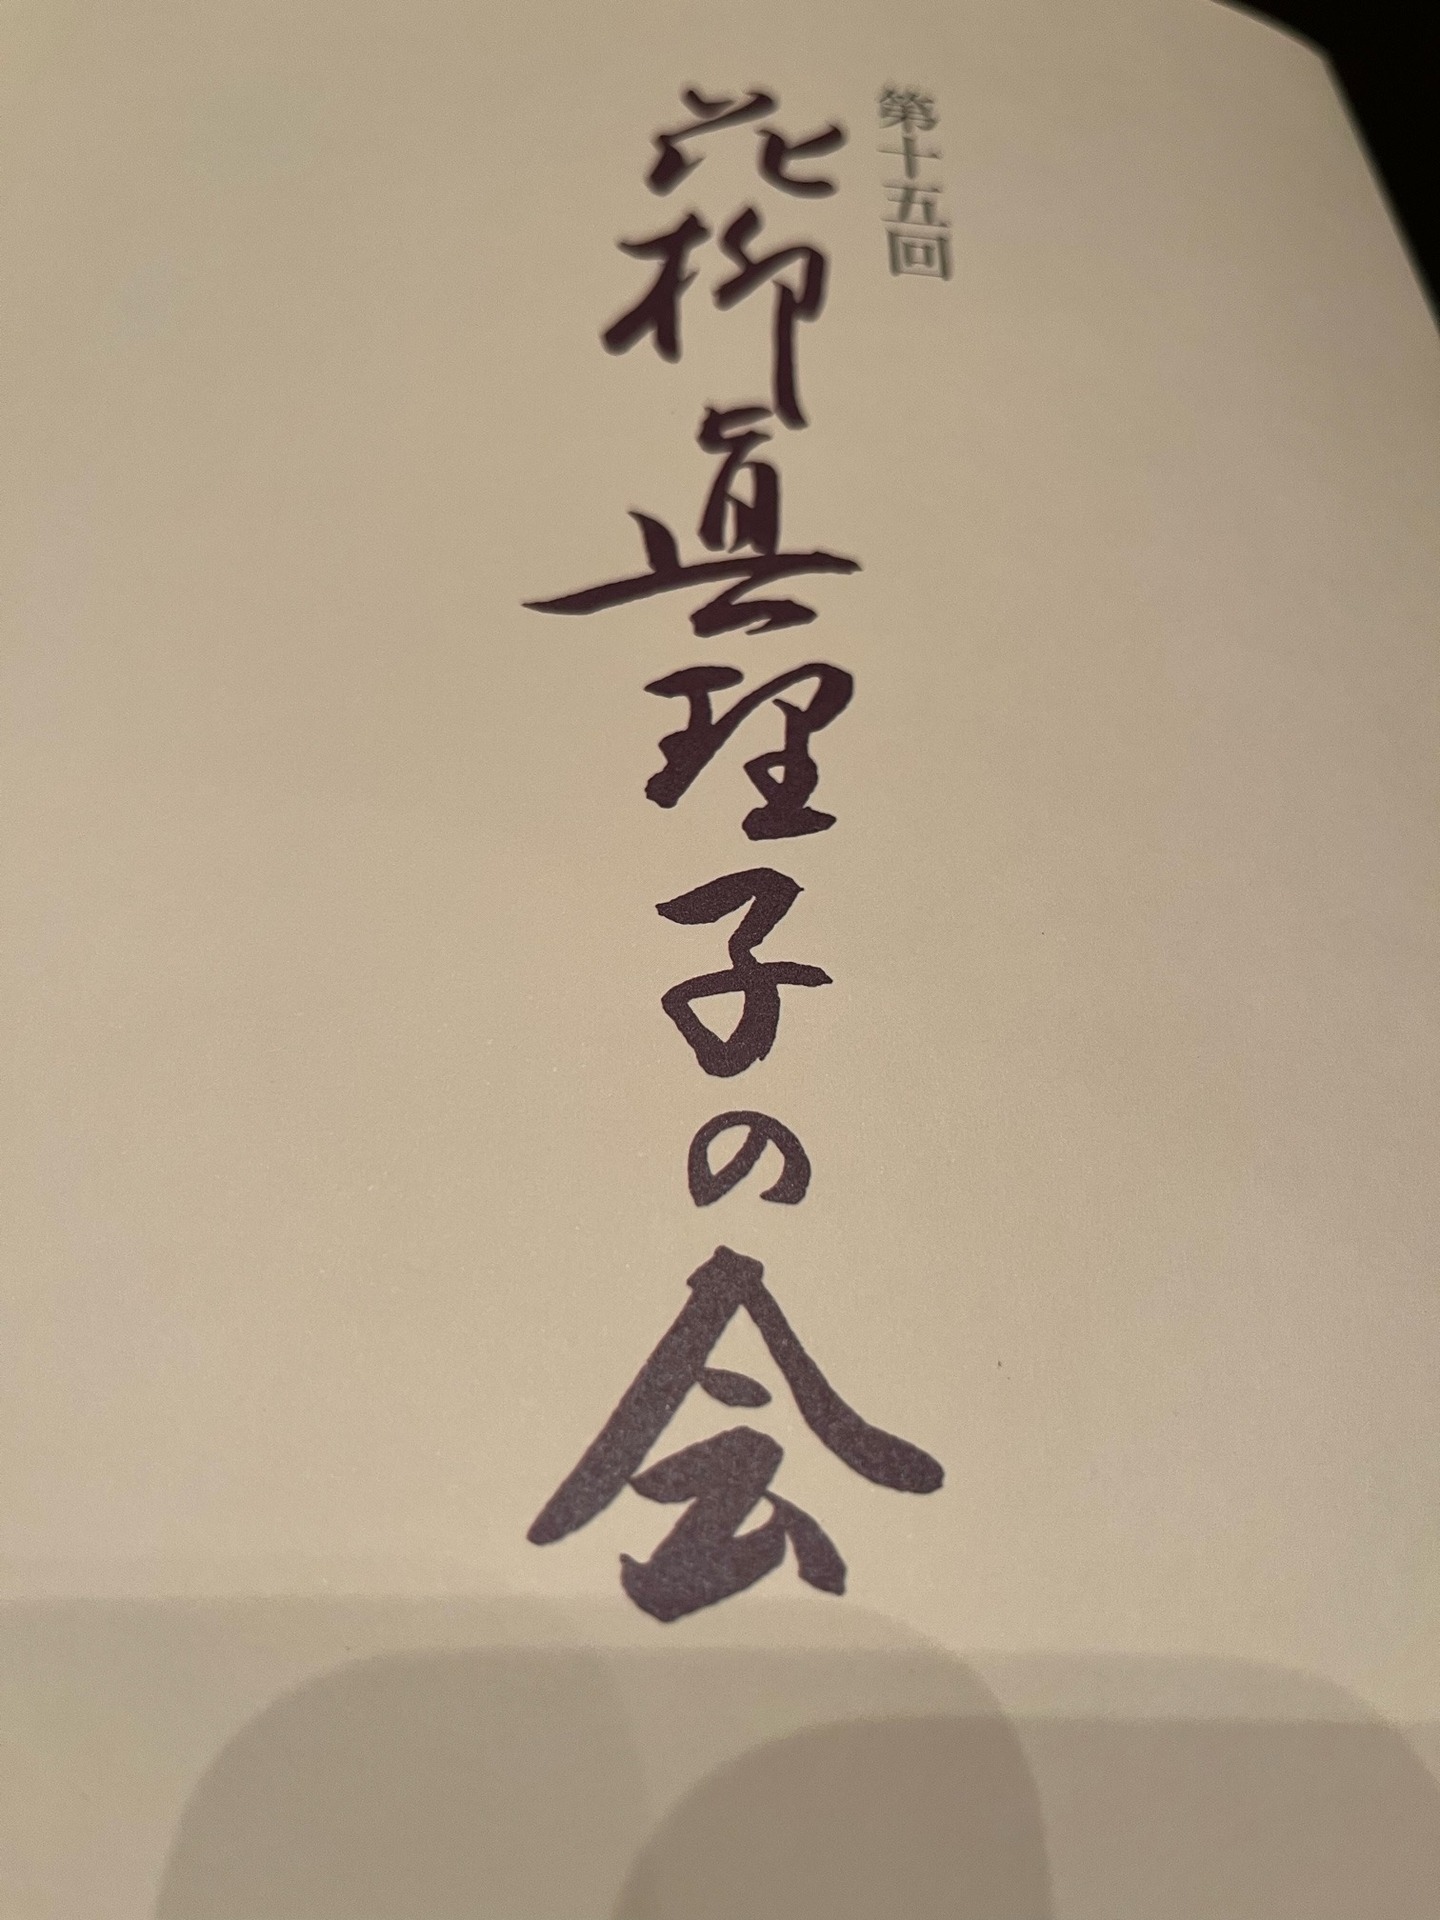 第十五回
花柳眞理子の会